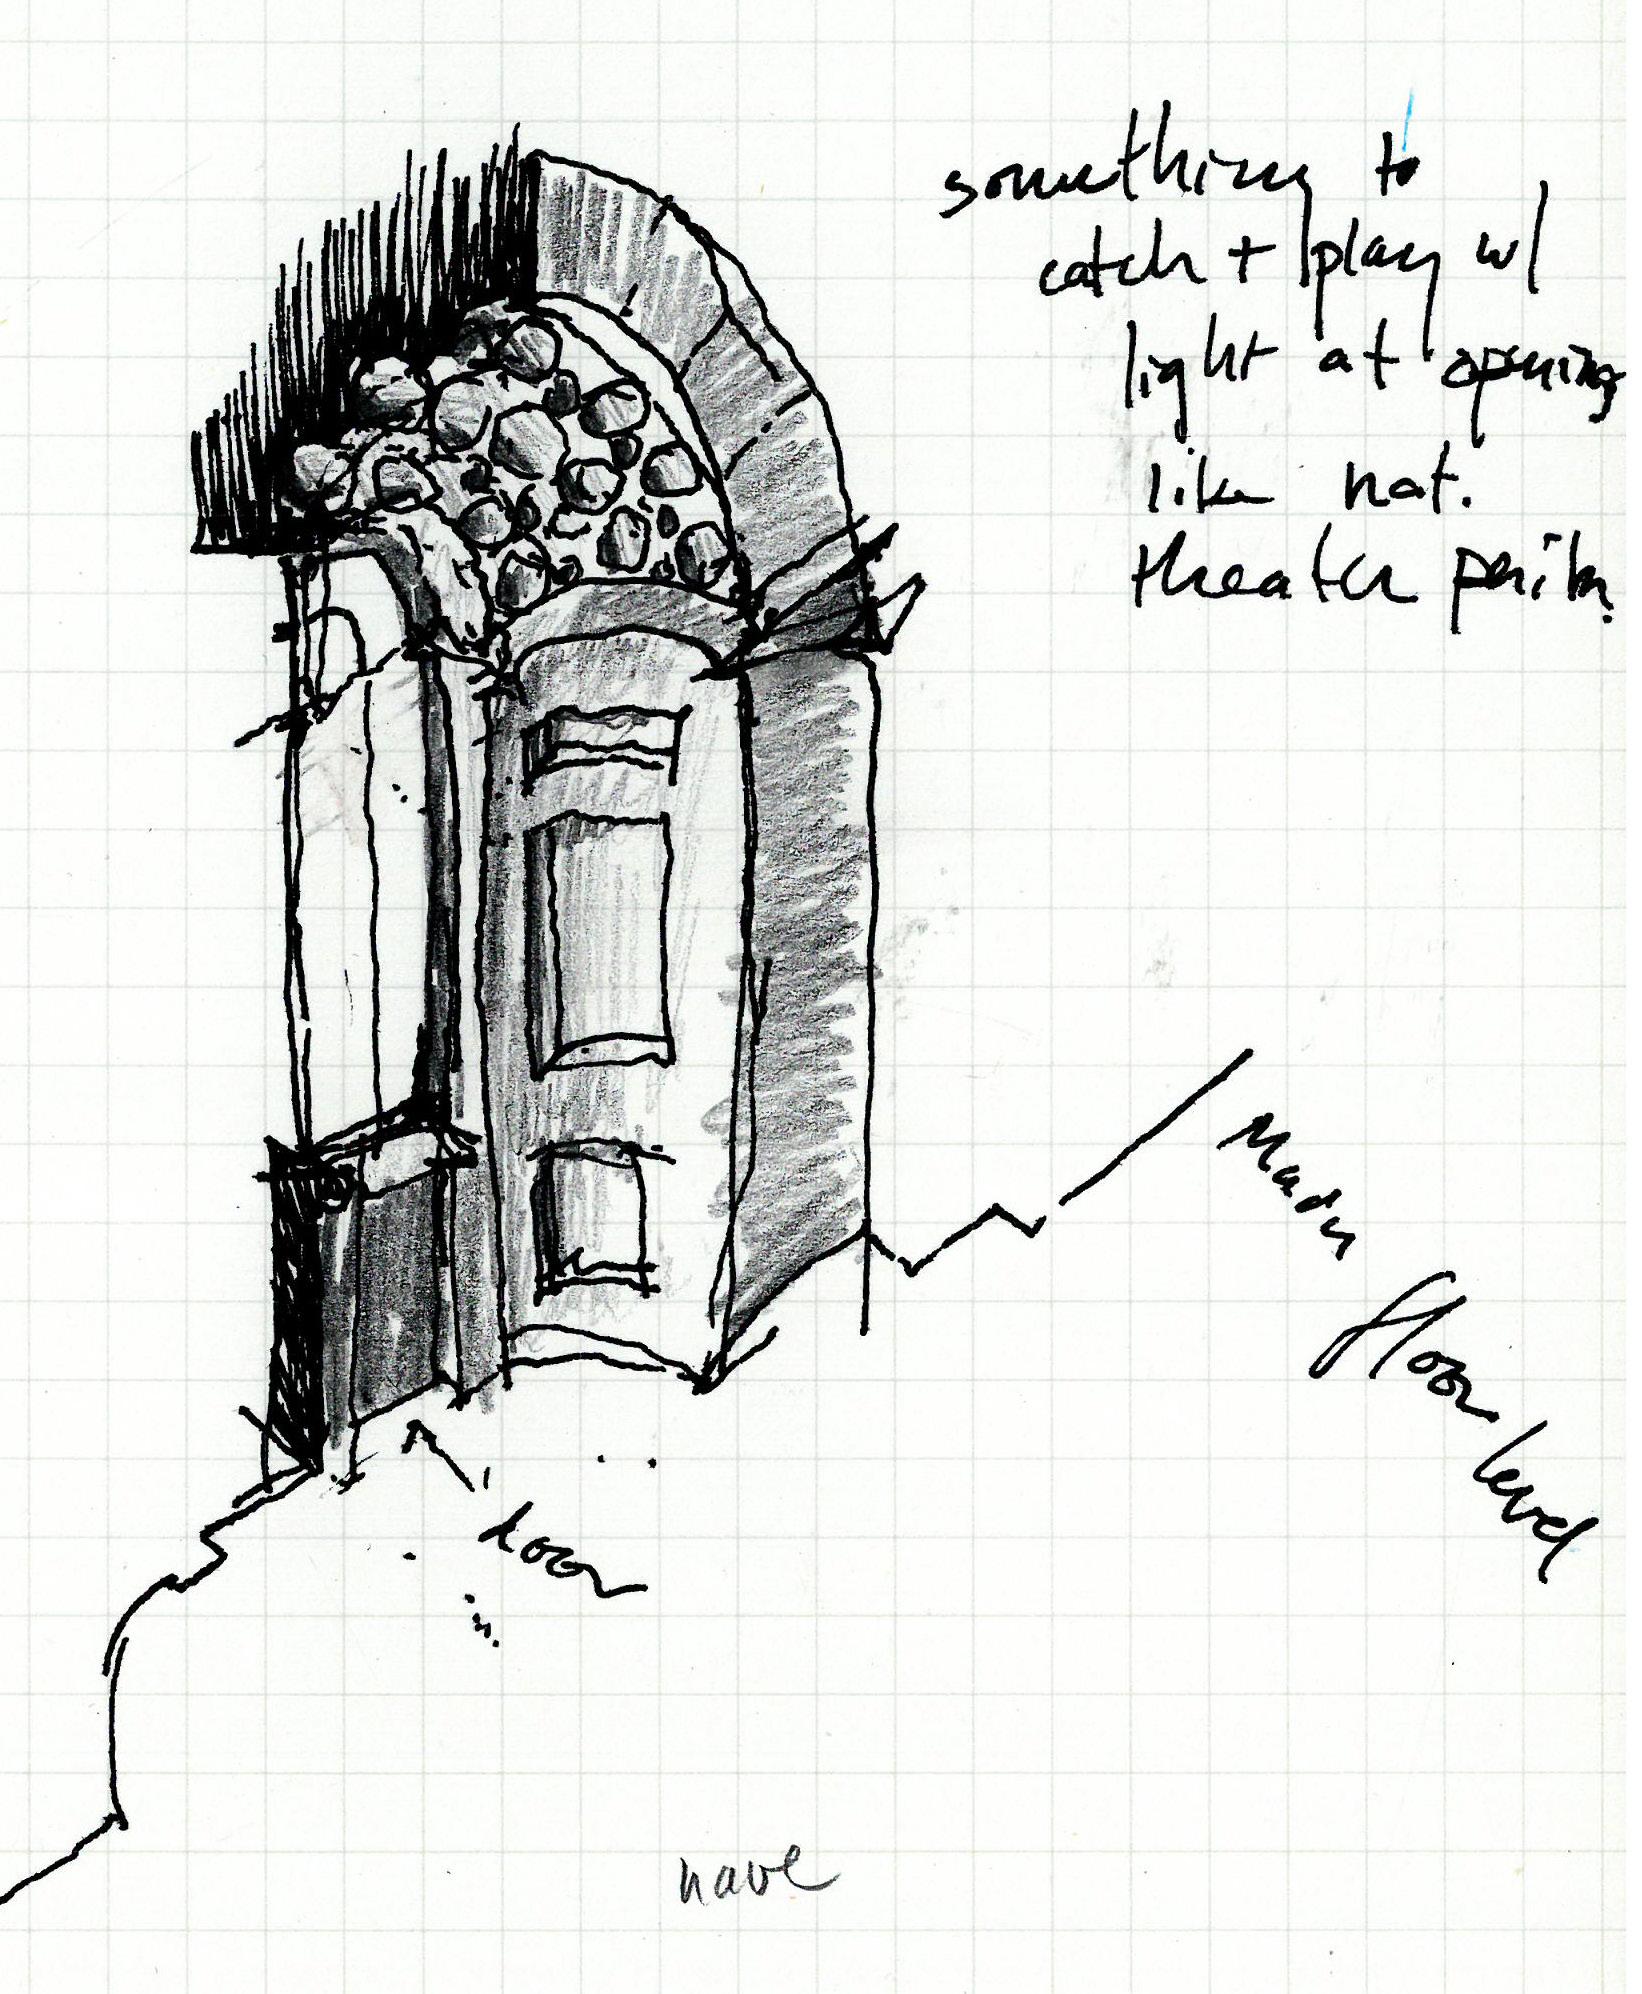 something to
catch + play w/
light at opening
like nat.
theater
floor level
door
nave